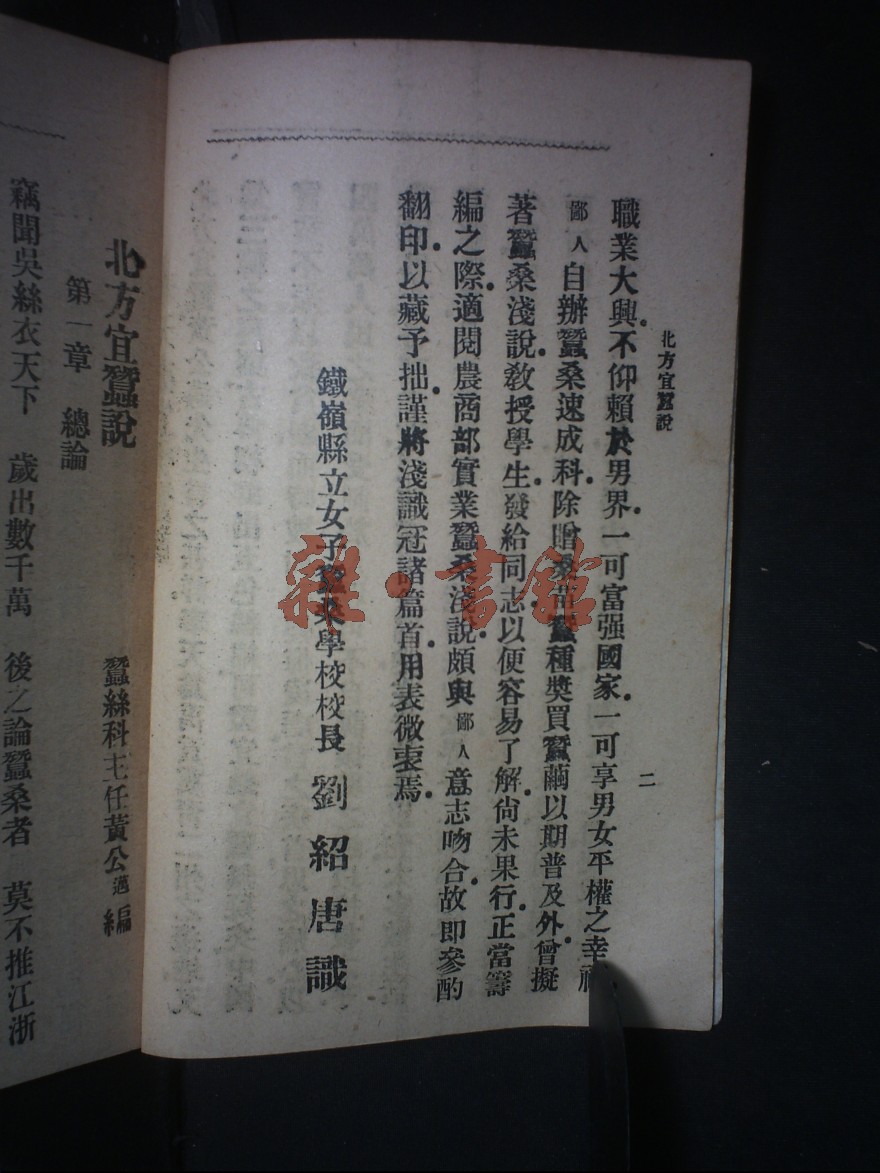 北方宜蠶說
二
職業大興。不仰賴於男界。一可富强國家。一可享男女平權之幸
鄙人自辦蠶桑速成科。除贈桑苗蠶種獎買蠶繭以期普及外。曾擬
著蠶桑淺說。敎授學生。發給同志以便容易了解。尙未果行。正當籌
編之際。適閱農商部實業蠶桑淺說。頗與鄙人意志吻合。故即參酌
翻印。以藏予拙。謹將淺識冠諸篇首。用表微衷焉。
鐵嶺縣立女子蠶桑學校校長 劉紹唐識
北方宜蠶說
蠶絲科主任黃公邁編
第一章 總論
竊聞吳絲衣天下 歲出數千萬 後之論蠶桑者 莫不推江浙
雜·書館